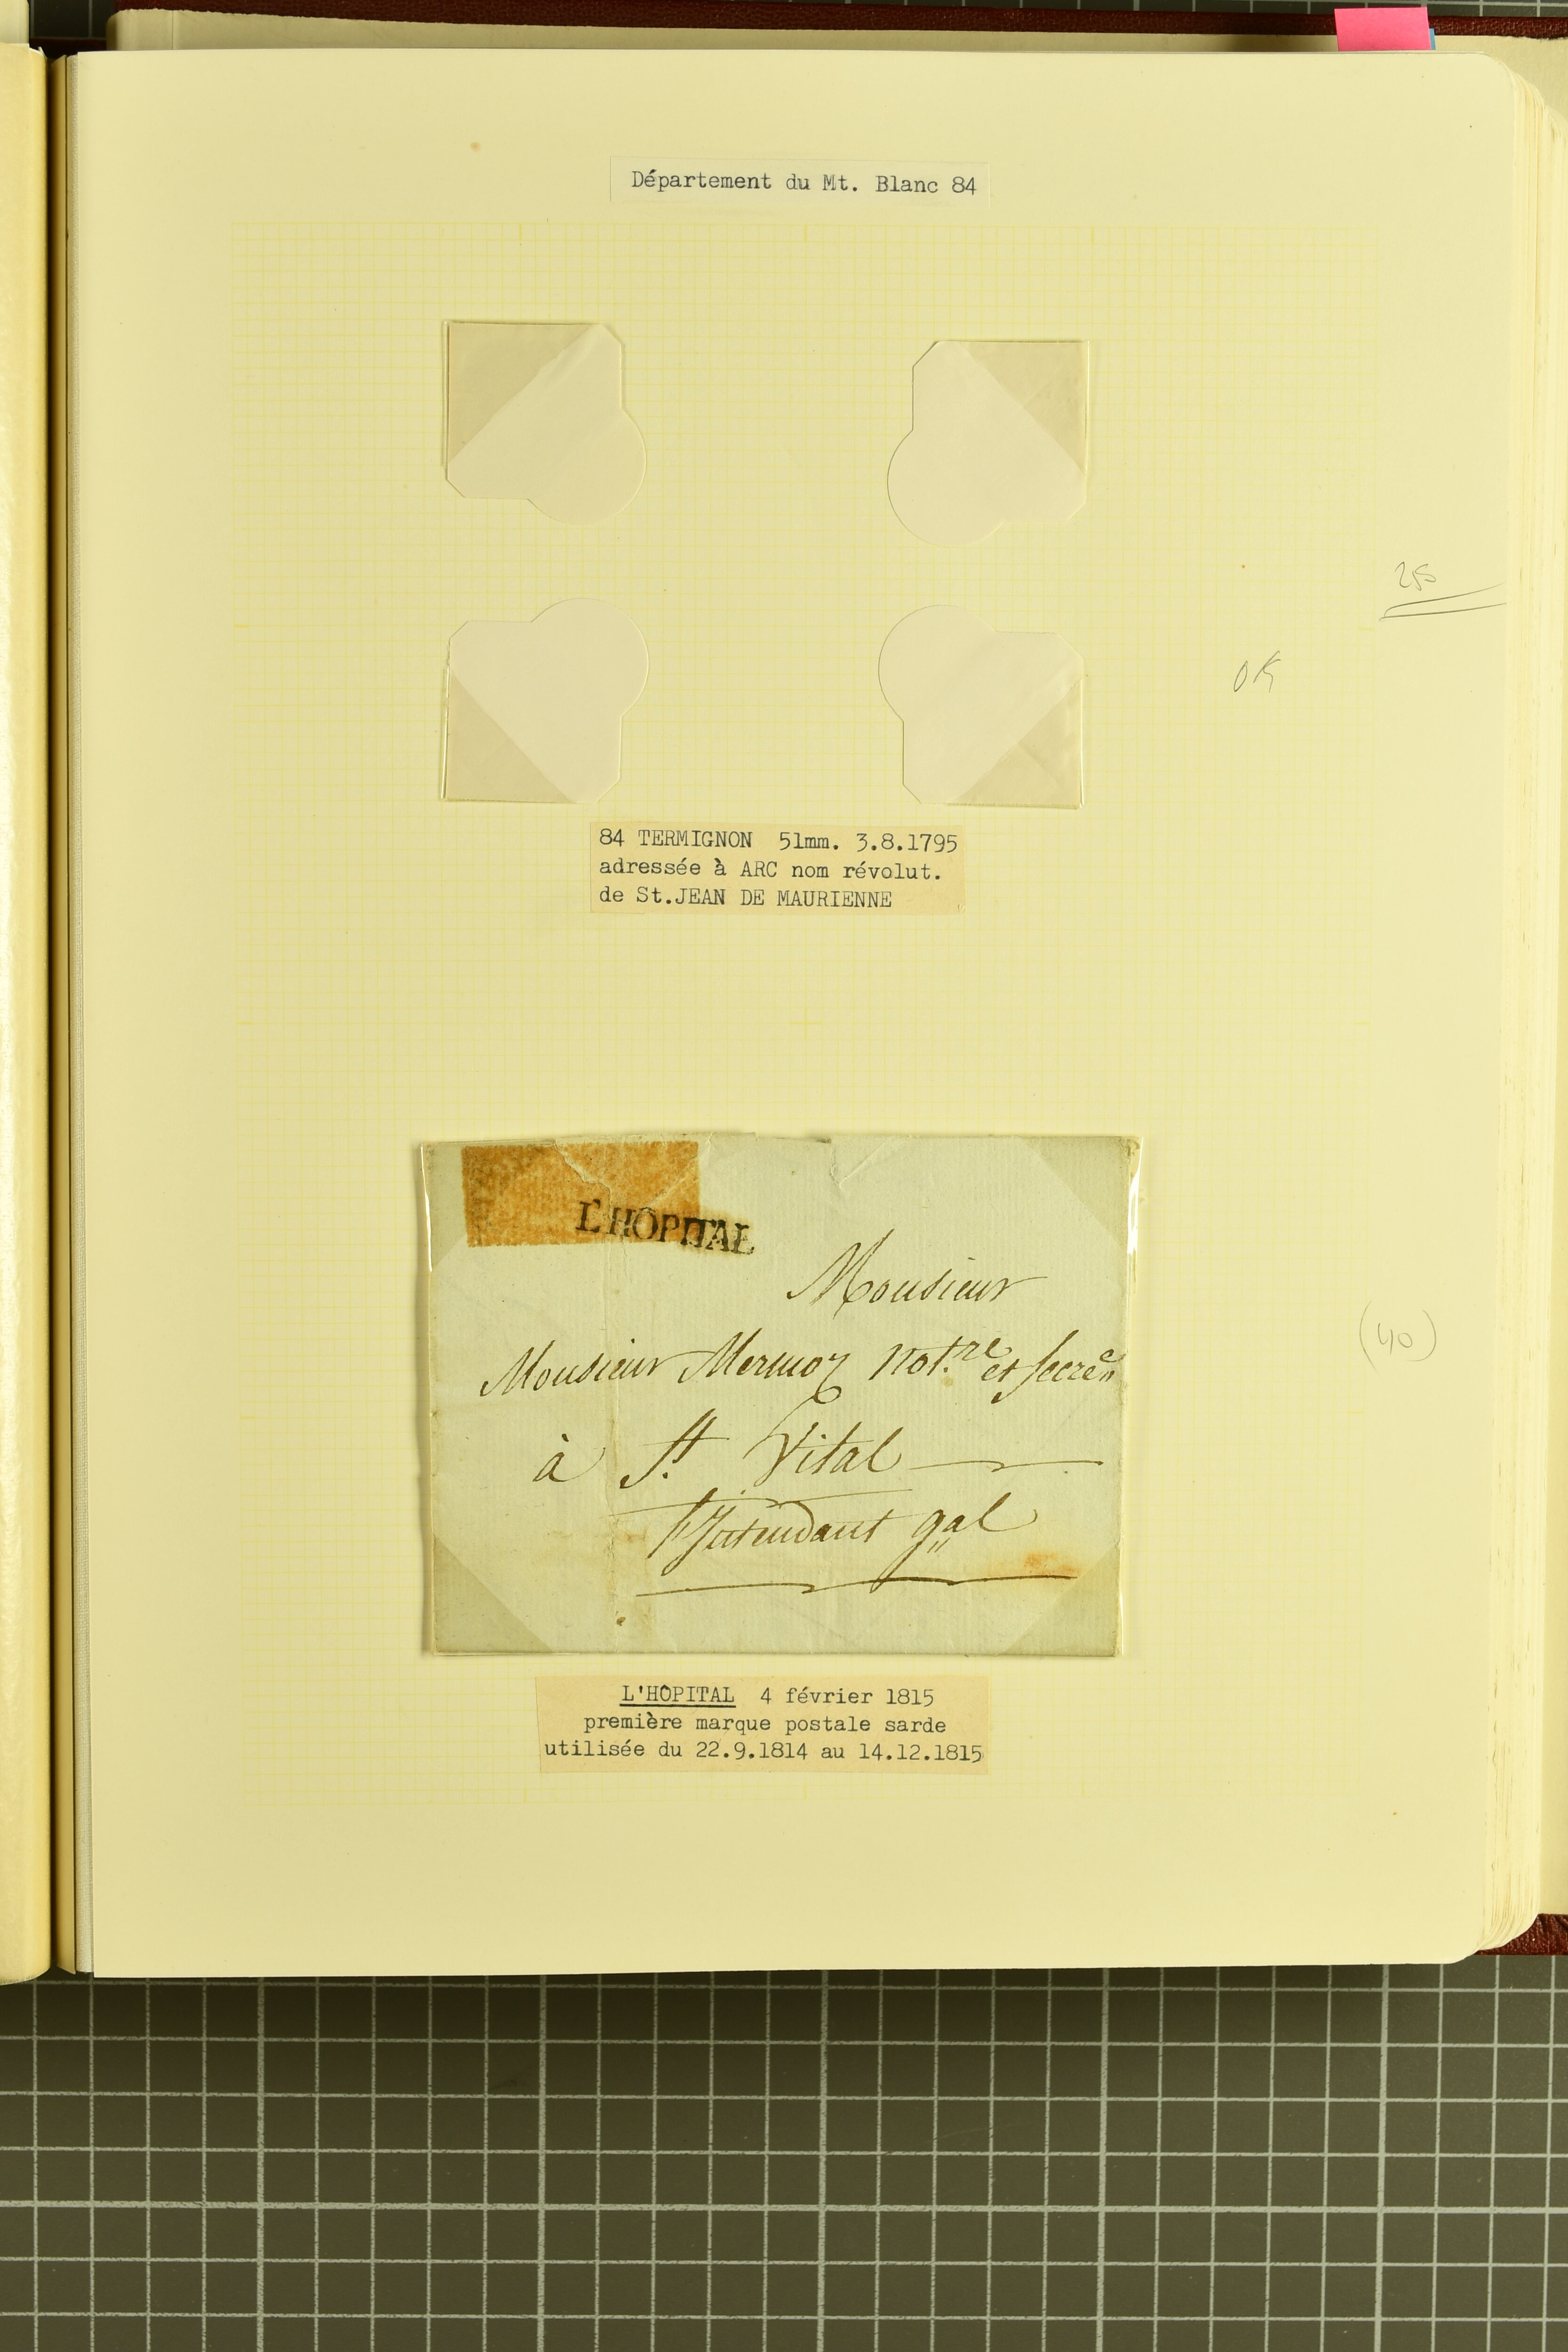 Département du Mt. Blanc 84
OK
84 TERMIGNON 51mm. 3.8.1795
adressée à ARC nom révolut.
de St.JEAN DE MAURIENNE
L'HOPITAL
Monsieur
Monsieur Mermoz Not.re et Secre
à St. Vital
l'Intendant gal
(40)
L'HÔPITAL 4 février 1815
première marque postale sarde
utilisée du 22.9.1814 au 14.12.1815